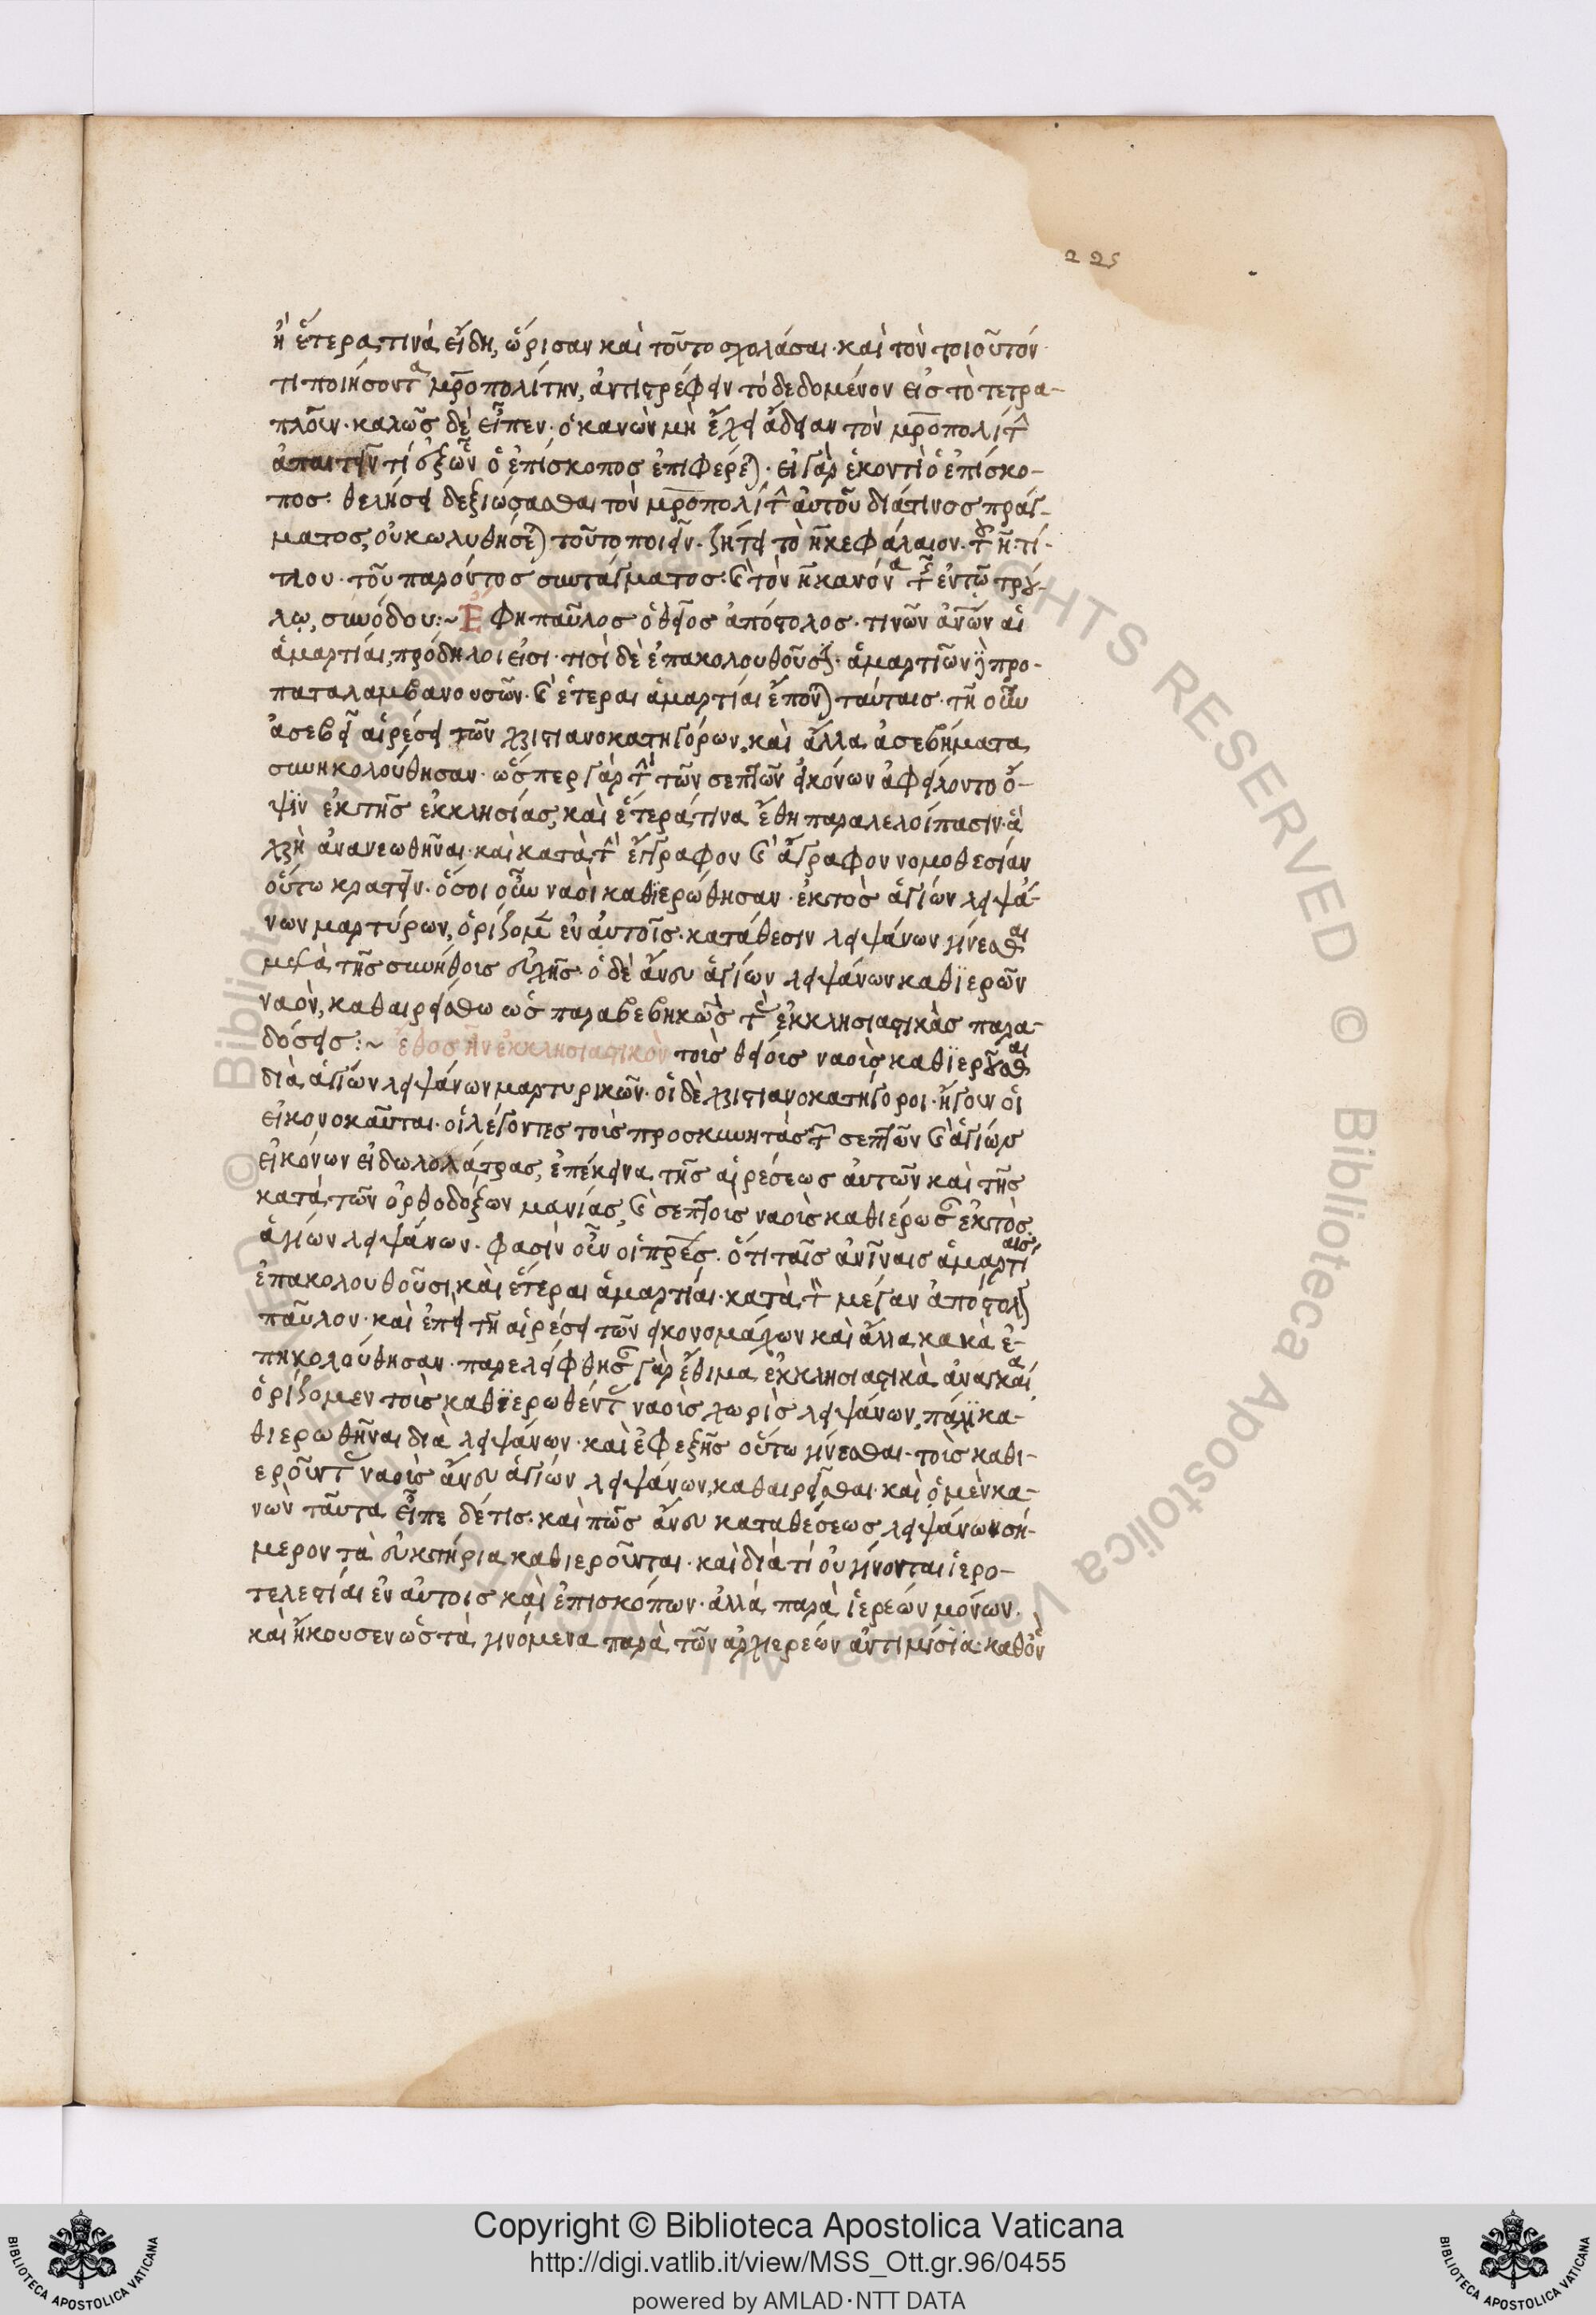 225
ἢ ἕτερα τινὰ εἴδη, ὥρισαν καὶ τοῦτο σχολάσαι· καὶ τὸν τοιοῦτόν
τι ποιήσοντα μρ̅οπολίτην, ἀντιστρέφειν τὸ δεδομένον εἰς τὸ τετρα-
πλοῦν· καλῶς δὲ εἶπεν ὁ κανὼν μὴ ἔχειν ἄδειαν τὸν μρ̅οπολίτ
ἀπαιτεῖν τί ἐξ ὧν ὁ ἐπίσκοπος ἐπιφέρε)· εἰ γὰρ ἑκοντὶ ὁ ἐπίσκο-
πος θελήσει δεξιώσασθαι τὸν μρ̅οπολίτ αὐτοῦ διά τινος πράγ-
ματος, οὐ κωλυθήσε) τοῦτο ποιεῖν· ζήτει τὸ η̅ κεφάλαιον τοῦ η̅ τί-
τλου τοῦ παρόντος συντάγματος· καὶ τὸν η̅ κανόνα τῆς ἐν τῷ τρού-
λῳ, συνόδου:~ Ἔφη παῦλος ὁ θεῖος ἀπόστολος· τινῶν ἀν̅ων αἱ
ἁμαρτίαι, πρόδηλοι εἰσι· τισὶ δὲ ἐπακολουθοῦσι· ἁμαρτιῶν γὰρ προ-
καταλαμβανουσῶν· καὶ ἕτεραι ἁμαρτίαι ἕπον) ταύταις· τῇ οὖν
ἀσεβεῖ αἱρέσει τῶν χριστιανοκατηγόρων, καὶ ἄλλα ἀσεβήματα
συνηκολούθησαν· ὥσπερ γὰρ τὴν τῶν σεπτῶν εἰκόνων ἀφείλοντο ὄ-
ψιν ἐκ τῆς ἐκκλησίας, καὶ ἕτερά τινα ἔθη παραλελοίπασιν· ἃ
χρὴ ἀνανεωθῆναι· καὶ κατὰ τὴν ἔγγραφον καὶ ἄγραφον νομοθεσίαν
οὕτω κρατεῖν· ὅσοι οὖν ναοὶ καθϊερώθησαν ἐκτὸς ἁγίων λειψά-
νων μαρτύρων, ὁρίζομεν ἐν αὐτοῖς κατάθεσιν λειψάνων γίνεσθαι
μετὰ τῆς συνήθοις εὐχῆς· ὁ δὲ ἄνευ ἁγίων λειψάνων καθϊερῶν
ναὸν, καθαιρείσθω ὡς παραβεβηκὼς τὰς ἐκκλησιαστικὰς παρα-
δόσεις:~ ἔθος ἦν ἐκκλησιαστικὸν τοὺς θείους ναοὺς καθϊεροῦσθαι
διὰ ἁγίων λειψάνων μαρτυρικῶν· οἱ δὲ χριστιανοκατήγοροι ἤγουν οἱ
εἰκονοκαῦται· οἱ λέγοντες τοὺς προσκυνητὰς τῶν σεπτῶν καὶ ἁγίων
εἰκόνων εἰδωλολάτρας, ἐπέκεινα τῆς αἱρέσεως αὐτῶν καὶ τῆς
κατὰ τῶν ὀρθοδόξων μανίας, καὶ σεπτοὺς ναοὺς καθιέρωσαν ἐκτὸς
ἁγίων λειψάνων· φασὶν οὖν οἱ πρ̅ες· ὅτι ταῖς ἀν̅ιναις ἁμαρτίαις
ἐπακολουθοῦσι, καὶ ἕτεραι ἁμαρτίαι· κατὰ τὸν μέγαν ἀπόστολον
παῦλον· καὶ ἐπεὶ τῇ αἱρέσει τῶν εἰκονομάχων καὶ ἄλλα κακὰ ἐ-
πηκολούθησαν· παρελείφθησαν γὰρ ἔθιμα ἐκκλησιαστικὰ ἀναγκαῖα
ὁρίζομεν τοὺς καθϊερωθέντας ναοὺς χωρὶς λειψάνων, πάλιν κα-
θιερωθῆναι διὰ λειψάνων· καὶ ἐφεξῆς οὕτω γίνεσθαι· τοὺς καθι-
εροῦντας ναοὺς ἄνευ ἁγίων λειψάνων, καθαιρεῖσθαι· καὶ ὁ μὲν κα-
νὼν ταῦτα εἶπε δέ τις· καὶ πῶς ἄνευ καταθέσεως λειψάνων σή-
μερον τὰ εὐκτήρια καθιεροῦνται· καὶ διὰ τί οὐ γίνονται ἱερο-
τελεστίαι ἐν αὐτοῖς καὶ ἐπισκόπων· ἀλλὰ παρὰ ἱερέων μόνων.
καὶ ἤκουσεν ὡς τὰ γινόμενα παρὰ τῶν ἀρχιερέων ἀντιμίσϊα καθὸν
Copyright © Biblioteca Apostolica Vaticana
http://digi.vatlib.it/view/MSS_Ott.gr.96/0455
powered by AMLAD·NTT DATA